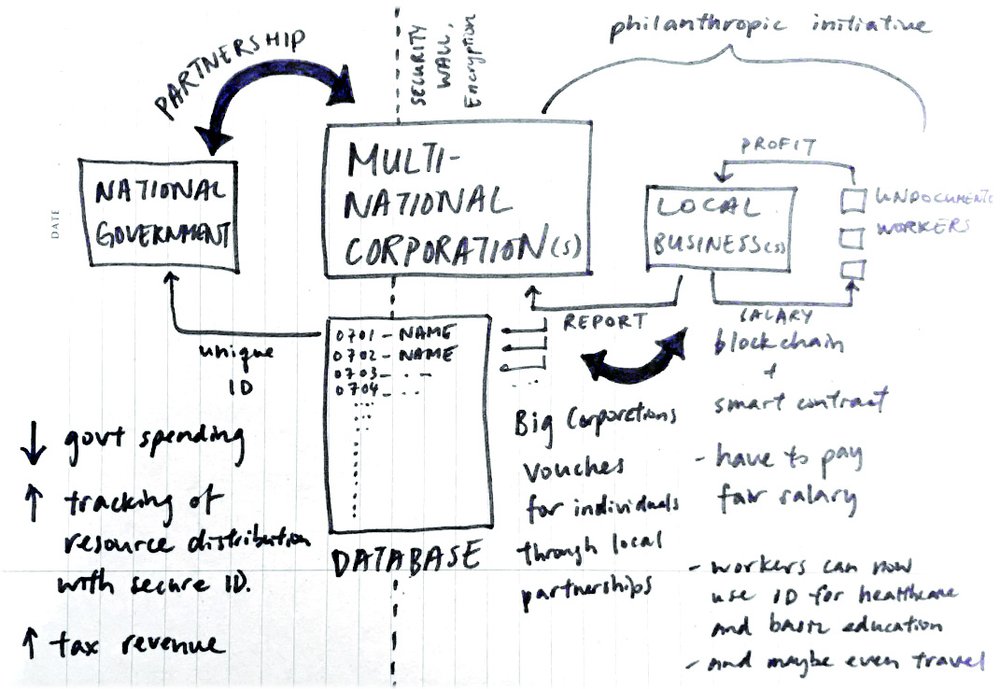 philanthropic initiative
PARTNERSHIP
SECURITY
WALL,
Encryption
DATE
NATIONAL
GOVERNMENT
MULTI-
NATIONAL
CORPORATION(s)
PROFIT
LOCAL
BUSINESS(es)
UNDOCUMENTE
WORKERS
REPORT
SALARY
unique
ID
0701 - NAME
0702 - NAME
0703 - . -
0704 - . .
DATABASE
↓ govt spending
↑ tracking of
resource distribution
with secure ID.
↑ tax revenue
Big Corporetions
vouches
for individuals
through local
partnerships
blockchain
+
smart contract
- have to pay
fair salary
- workers can now
use ID for healthcare
and basic education
- and maybe even travel